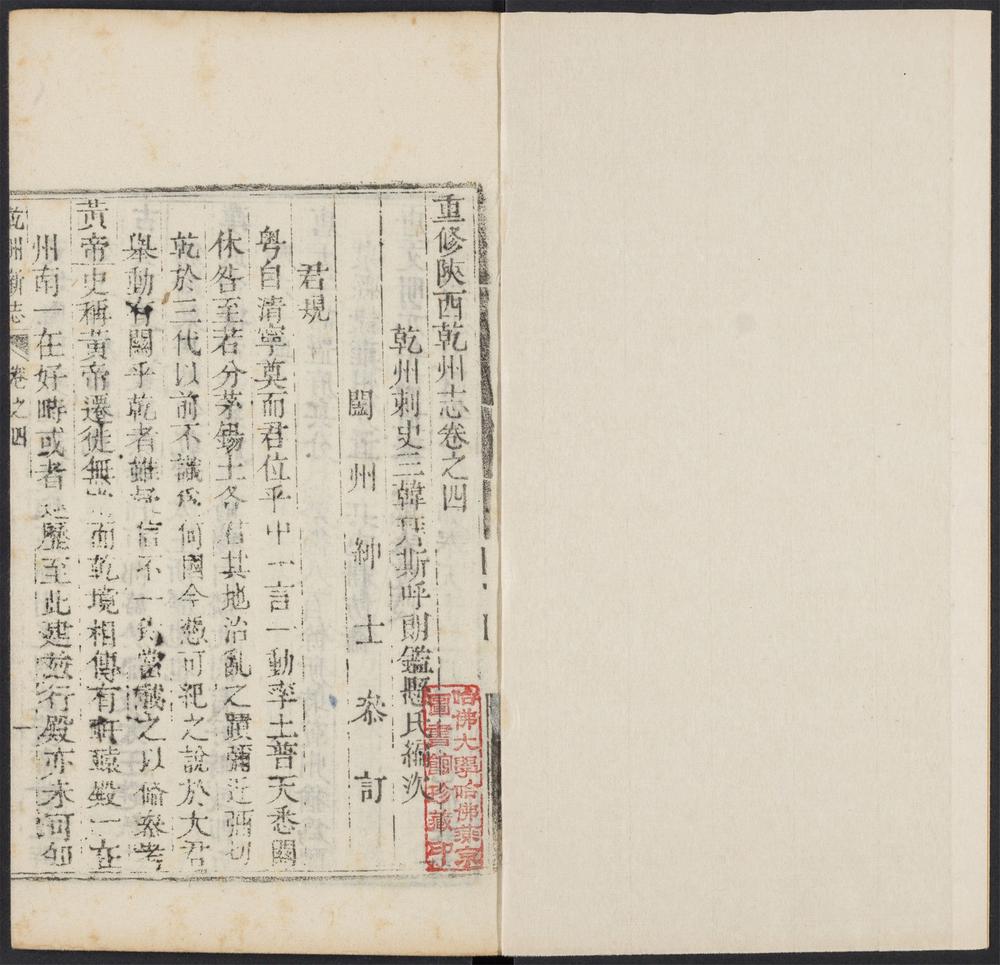 重修陝西乾州志卷之四
乾州刺史三韓拜斯呼朗鑑懸氏編次
闔州紳士叅訂
君規
粵自清寧奠而君位乎中一言一動率土普天悉關
休咎至若分茅錫土各君其地治亂之蹟彌近彌切
乾於三代以前不識為何國今憑可紀之說於大君
舉動有關乎乾者雖疑信不一均當載之以俻叅考
黃帝史稱黃帝遷徙無常而乾境相傳有軒轅殿一在
州南一在好畤或者遊歷至此建茲行殿亦未可知
乾州新志
卷之四
一
哈佛大學哈佛燕京
圖書館珍藏印